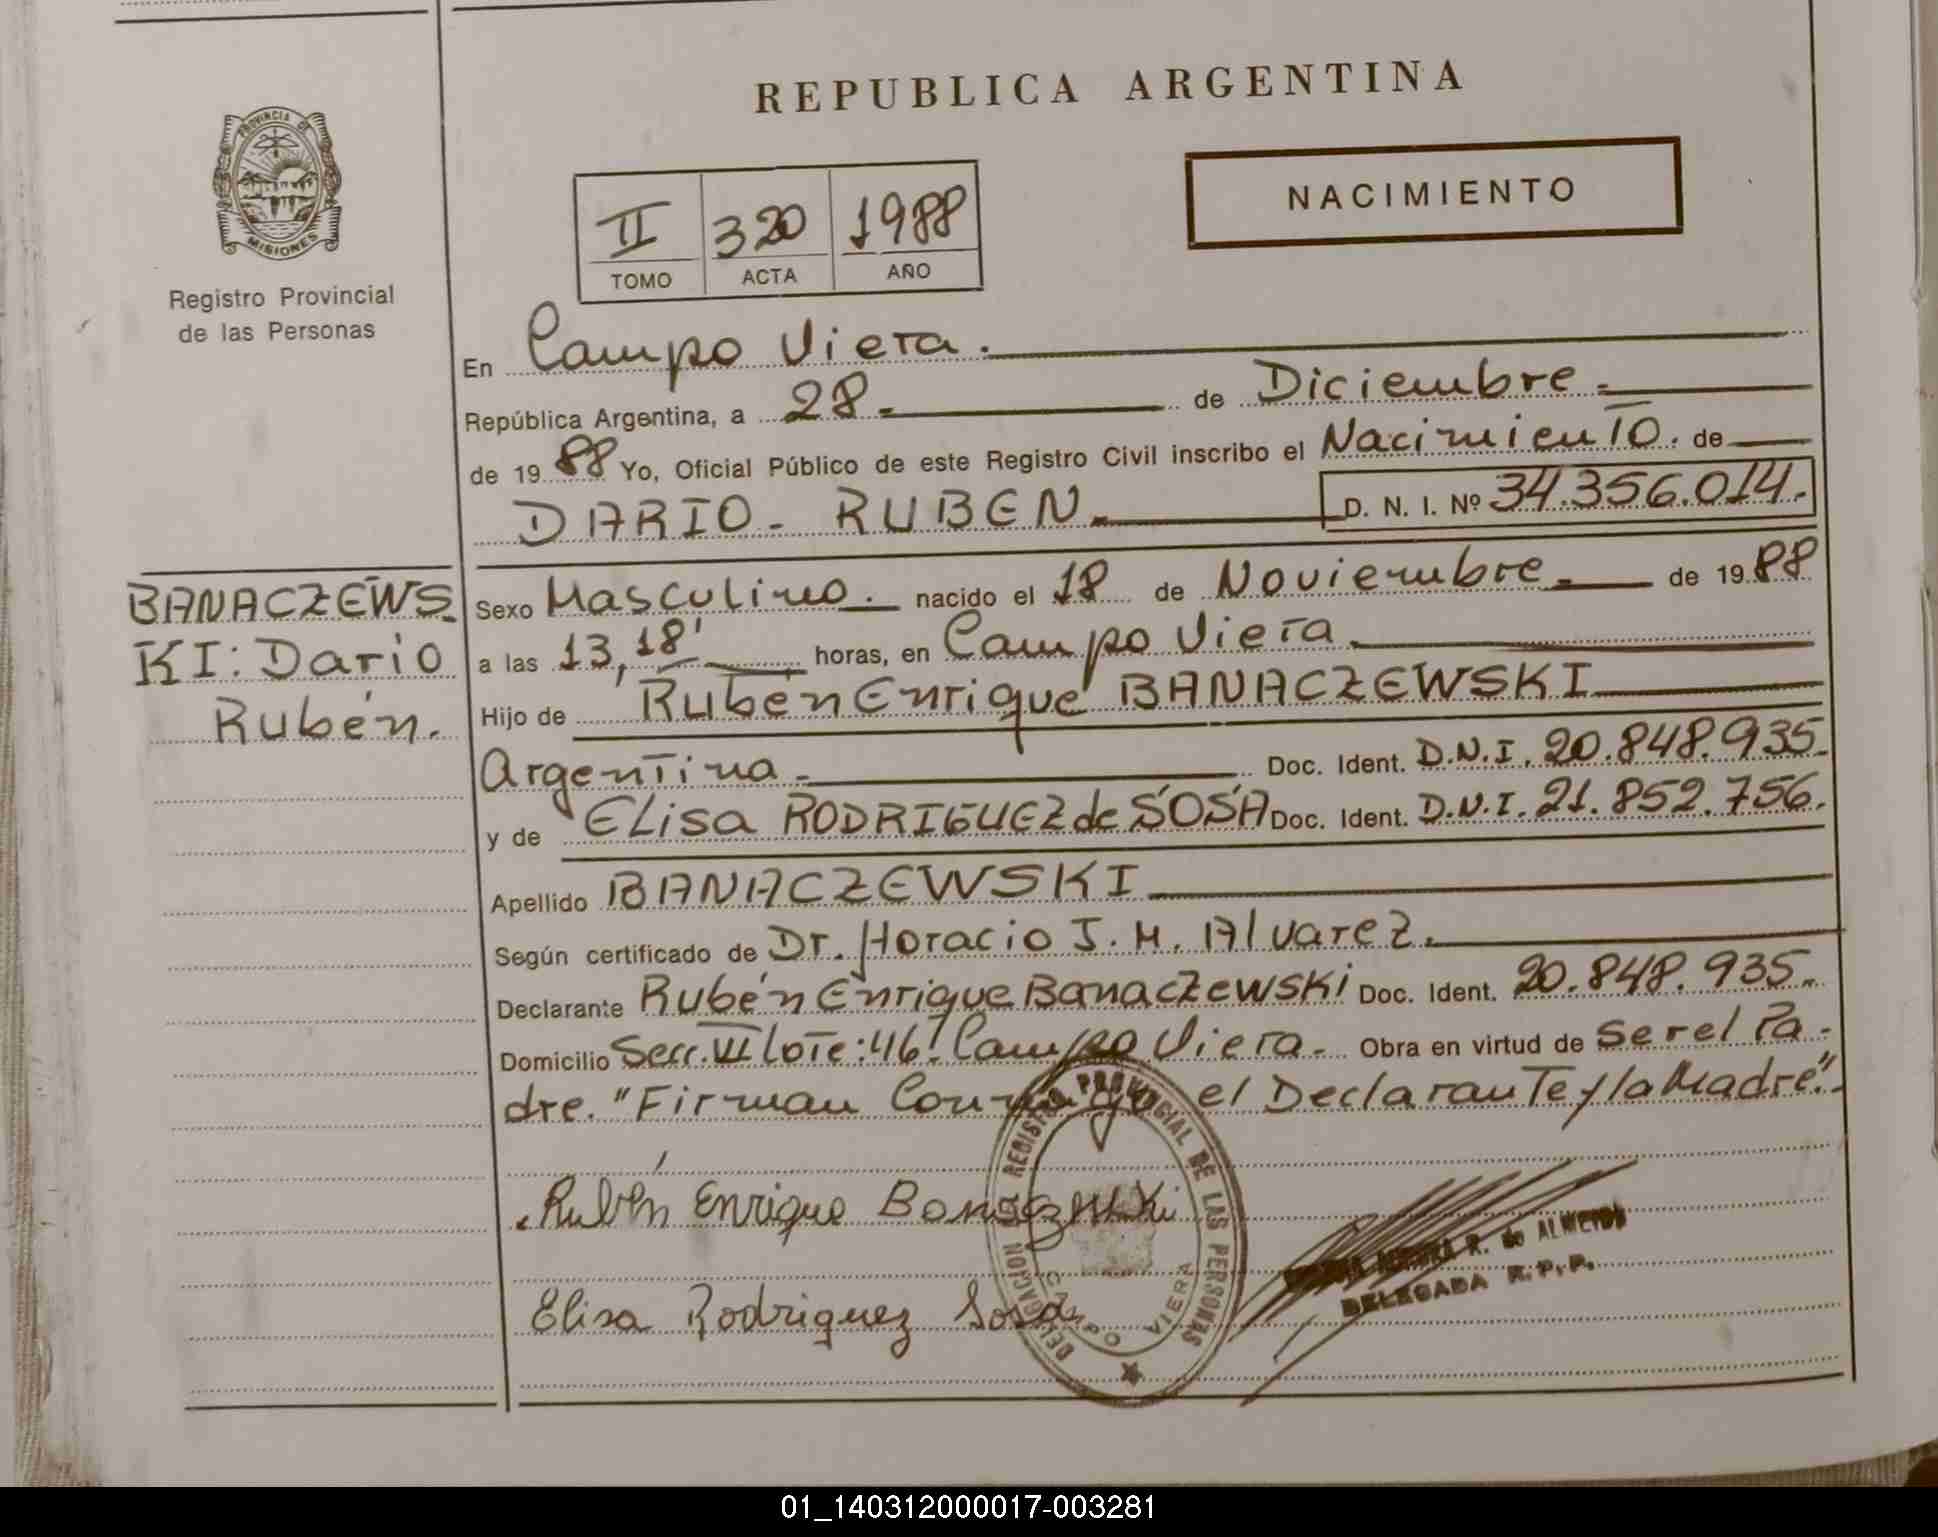 REPUBLICA ARGENTINA
PROVINCIA DE
MISIONES
Registro Provincial
de las Personas
NACIMIENTO
II 320 1988
TOMO ACTA AÑO
En Campo Viera.
República Argentina, a 28. de Diciembre.
de 1988 Yo, Oficial Público de este Registro Civil inscribo el Nacimiento. de
DARIO. RUBEN. D. N. I. Nº 34.356.014.
BANACZEWS.
KI: Dario
Rubén.
Sexo Masculino. nacido el 18 de Noviembre. de 1988
a las 13,18' horas, en Campo Viera.
Hijo de Rubén Enrique BANACZEWSKI
Argentina. Doc. Ident. D.N.I. 20.848.935.
y de Elisa RODRIGUEZ de SOSA Doc. Ident. D.N.I. 21.852.756.
Apellido BANACZEWSKI
Según certificado de Dr. Horacio J. M. Alvarez.
Declarante Rubén Enrique Banaczewski Doc. Ident. 20.848.935.
Domicilio Secc. VI lote: 46! Campo Viera. Obra en virtud de ser el Pa-
dre. "Firman Conmigo el Declarante y la Madre".
Rubén Enrique Banaczewski
Elisa Rodriguez Sosa
DELEGACION REGISTRO PROVINCIAL DE LAS PERSONAS
CAMPO VIERA
R. de ALMEIDA
DELEGADA R.P.P.
01_140312000017-003281